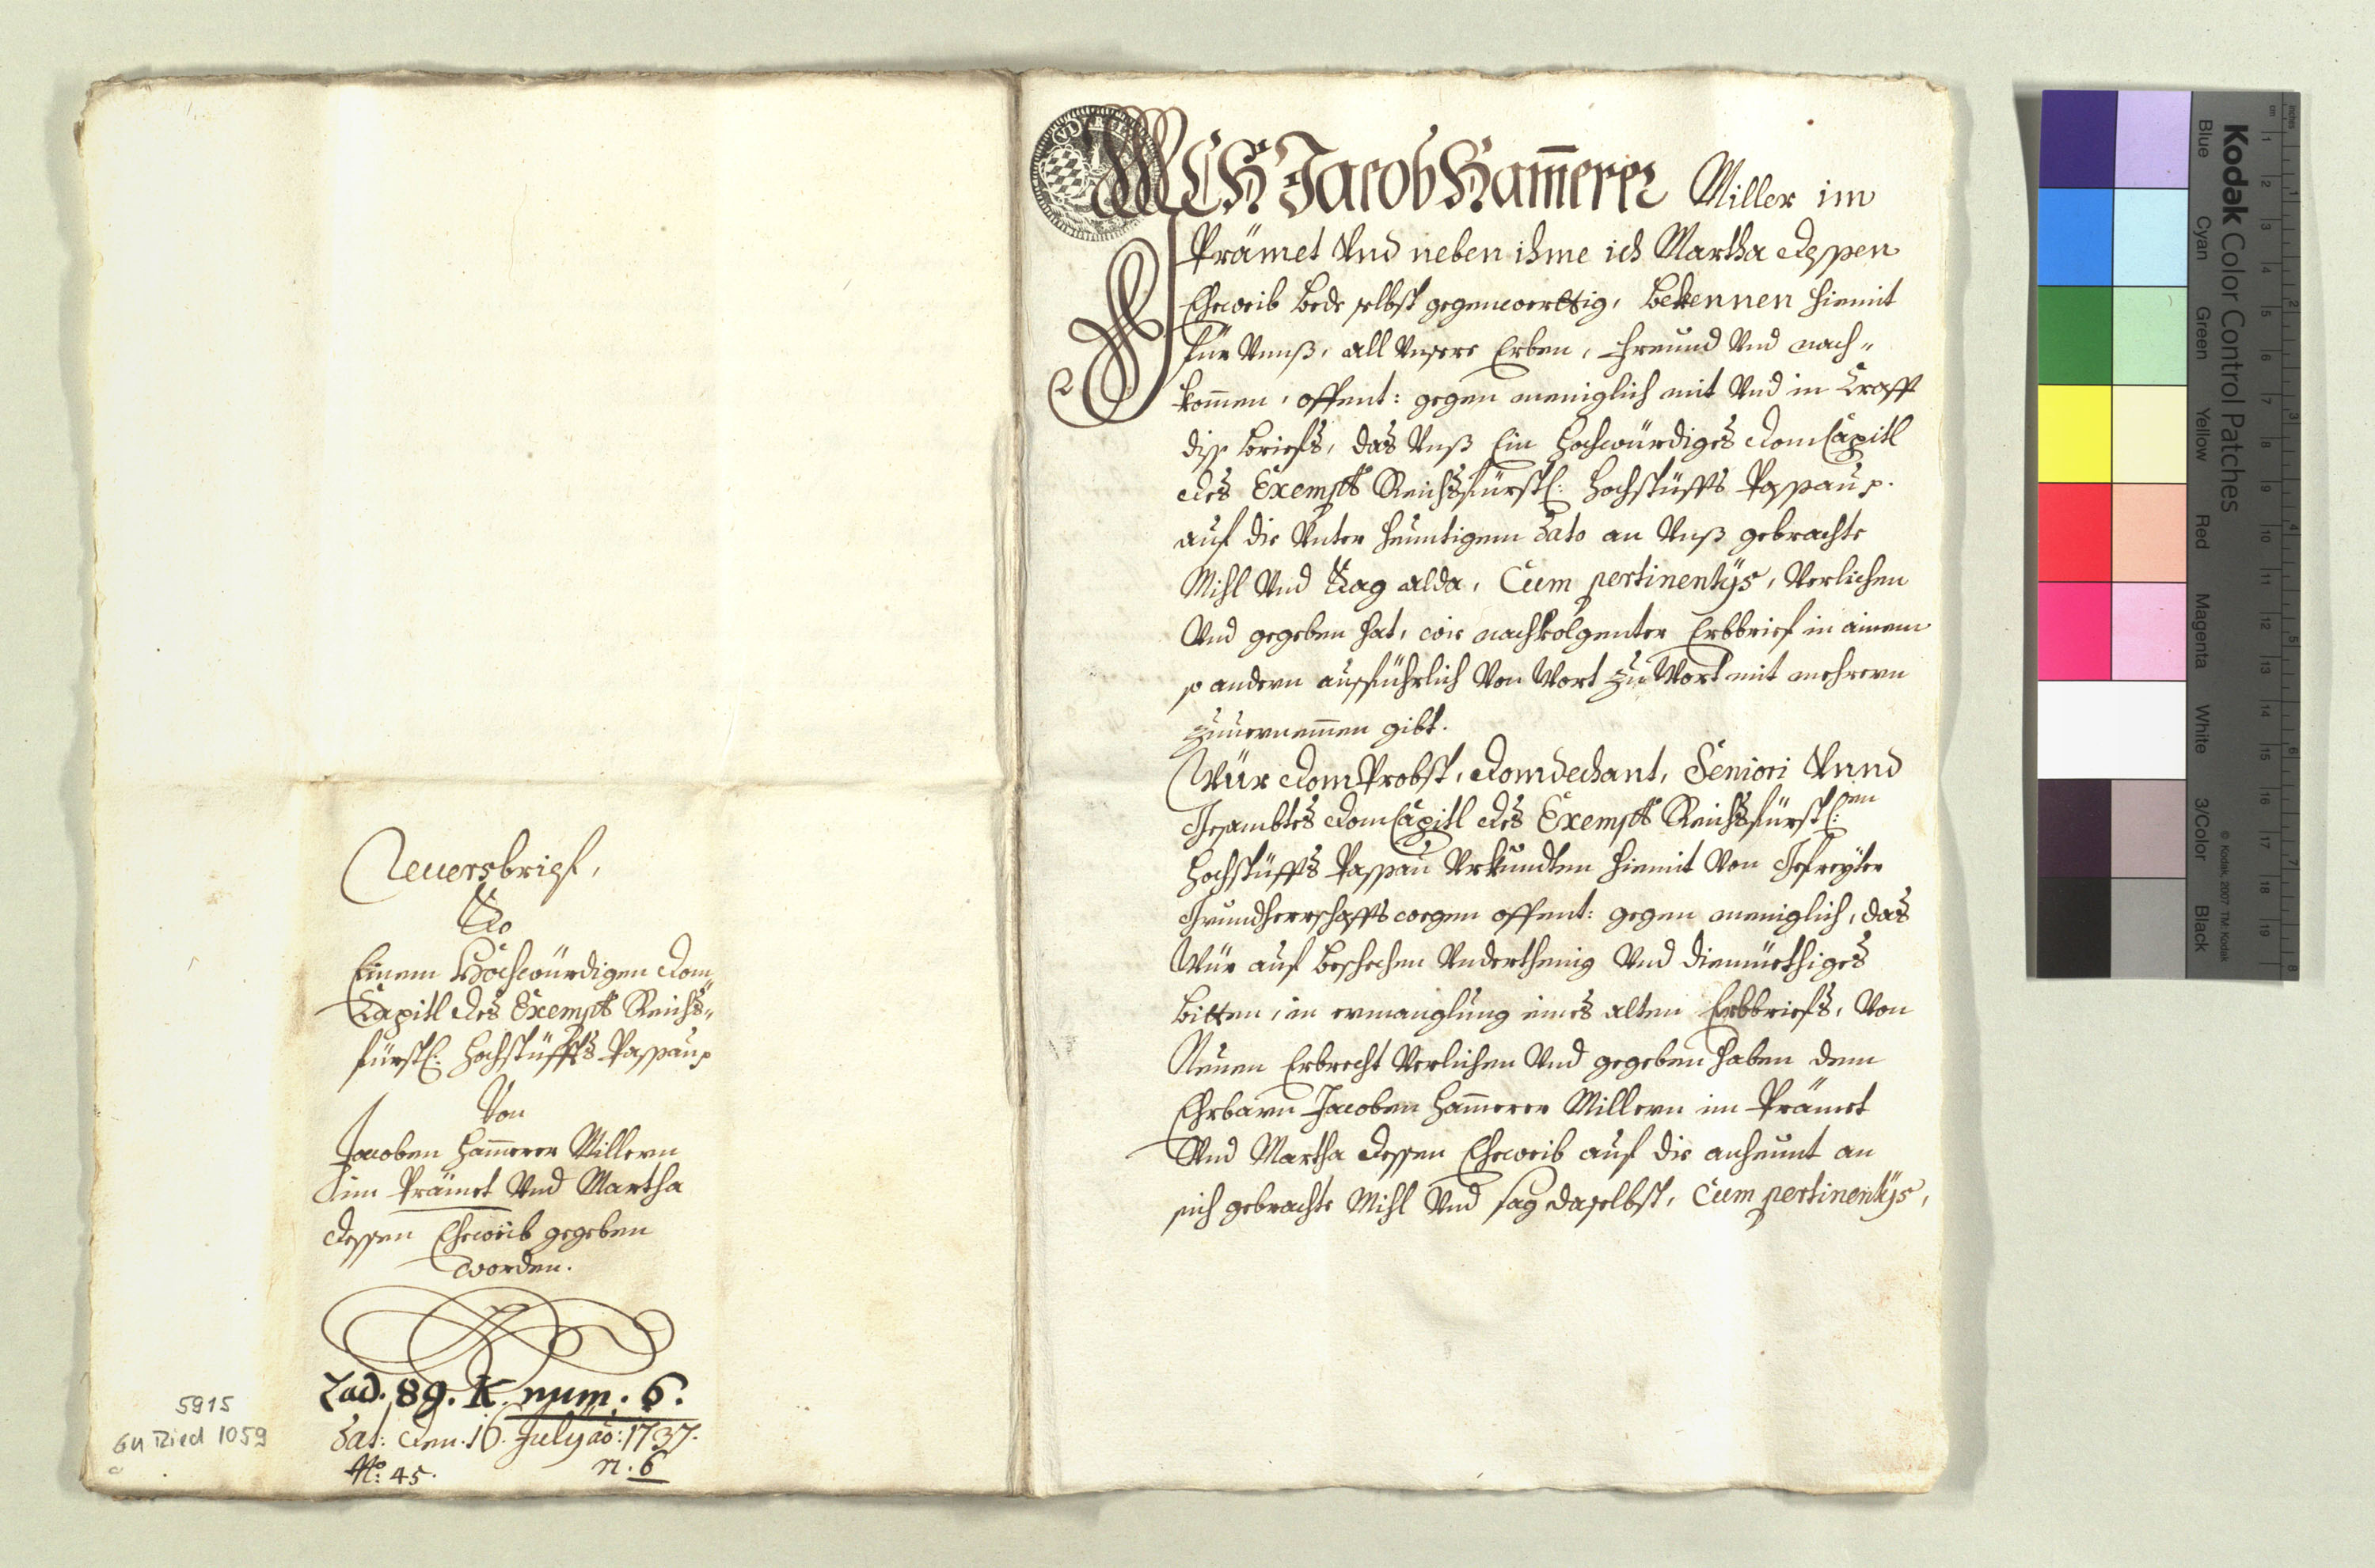 Reuersbrief,
So
Einem Hochwürdigen Dom„
Capitl des Exempt Reichs„
fürstl: Hochstüffts Passau p
Von
Jacoben Ham̄erer Millern
im Prämet Und Martha
dessen Eheweib gegeben
worden.
Lad. 89. K. num. 6.
Dat: den. 16. July ao: 1737.
No: 45. n. 6
5915
GU Ried 1059
ICH Jacob Ham̄erer Miller im
Prämet Und neben ihme ich Martha dessen
Eheweib bede selbst gegenwerttig, Bekennen hiemit
für Unnß, all Unsere Erben, Freund Und nach„
kom̄en, offent: gegen meniglich mit Und in Crafft
diss briefs, das Unß Ein Hochwürdiges DomCapitl
des Exempt Reichsfürstl: Hochstüffts Passau p.
auf die Unter heuntigem dato an Unß gebrachte
Mihl Und Sag alda, Cum pertinentijs, Verlichen
Und gegeben hat, wie nachfolgenter Erbbrief in ainem
p andern ausführlich Von Wort zu Wort mit mehrern
zuuernem̄en gibt.
Wür DomProbst, Domdechant, Seniori Unnd
Gesambtes DomCapitl des Exempt Reichsfürstl:en
Hochstüffts Passau Urkundten hiemit Von Gefreyter
Grundherrschaffts wegen offent: gegen meniglich, das
Wür auf beschechen Underthenig Und diemüethiges
bitten, in ermanglung eines alten Erbbriefs, Von
Neuen Erbrecht Verlichen Und gegeben haben dem
Ehrbarn Jacoben Ham̄erer Millern im Prämet
Und Martha dessen Eheweib auf die anheunt an
sich gebrachte Mihl Und sag daselbst, Cum pertinentijs,
Kodak Color Control Patches
Blue
Cyan
Green
Yellow
Red
Magenta
White
3/Color
Black
© Kodak, 2007 TM: Kodak
cm 1 2 3 4 5 6 7 8 9 10 11 12 13 14 15 16 17 18 19
inches 1 2 3 4 5 6 7 8